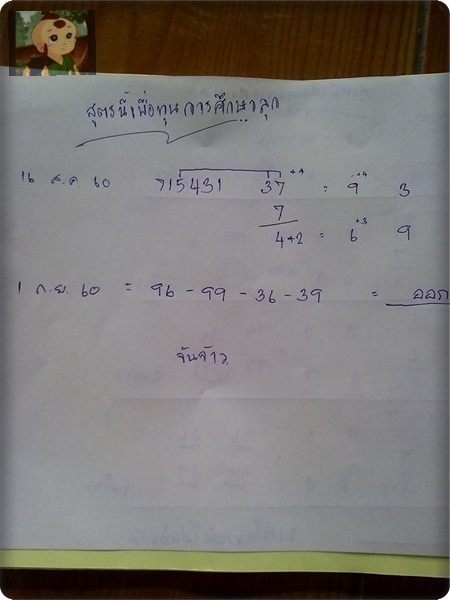 สูตรนี้เพื่อทุนการศึกษาลูก
16 ส.ค. 60 715431 37 +4 = 9 +4 3
7
4+2 = 6 +3 9
1 ก.ย. 60 = 96 - 99 - 36 - 39 = ออก
จันจ้าว